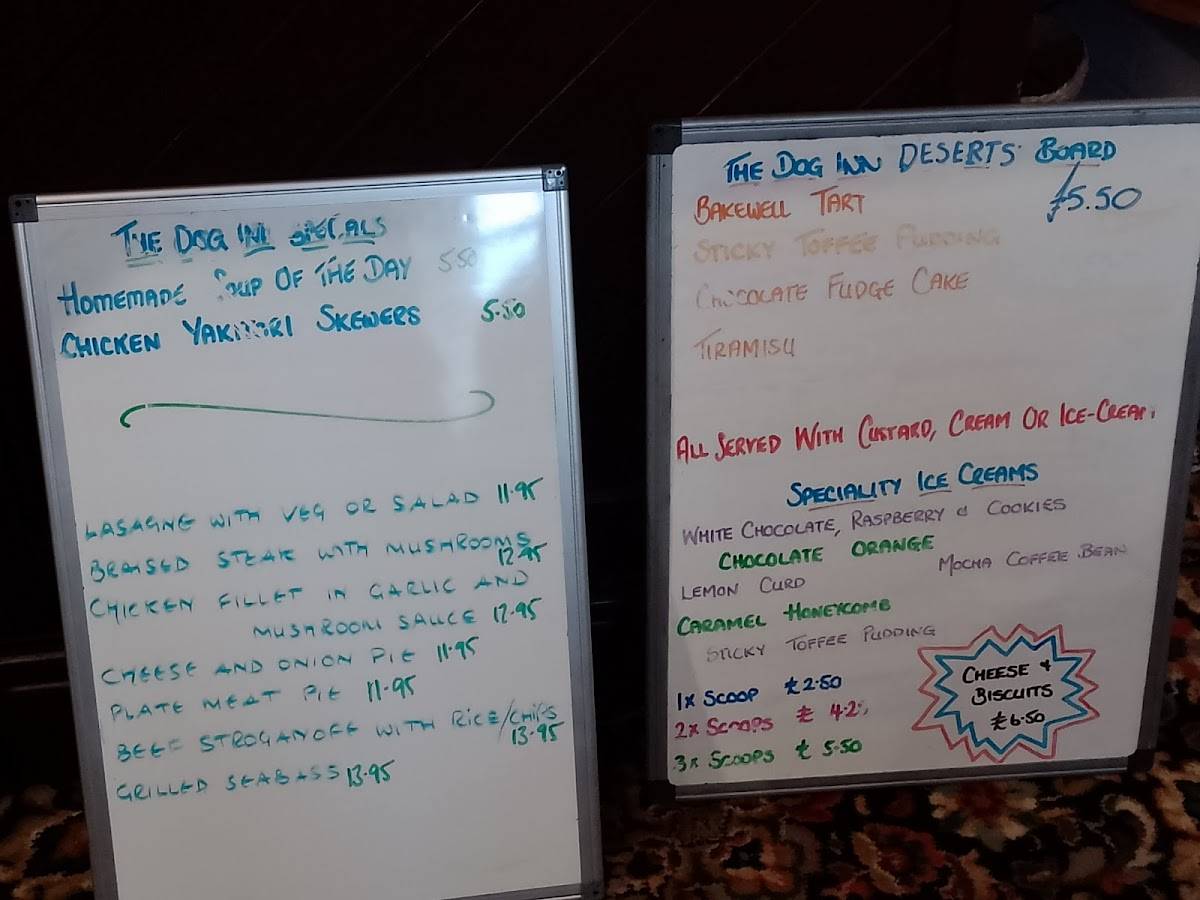 THE DOG INN SPECIALS
HOMEMADE SOUP OF THE DAY 5.50
CHICKEN YAKITORI SKEWERS 5.50
LASAGNE WITH VEG OR SALAD 11.95
BRAISED STEAK WITH MUSHROOMS
12.95
CHICKEN FILLET IN GARLIC AND
MUSHROOM SAUCE 12.95
CHEESE AND ONION PIE 11.95
PLATE MEAT PIE 11.95
BEEF STROGANOFF WITH RICE/CHIPS
13.95
GRILLED SEABASS 13.95
THE DOG INN DESERTS BOARD
BAKEWELL TART £5.50
STICKY TOFFEE PUDDING
CHOCOLATE FUDGE CAKE
TIRAMISU
ALL SERVED WITH CUSTARD, CREAM OR ICE-CREAM
SPECIALITY ICE CREAMS
WHITE CHOCOLATE, RASPBERRY & COOKIES
CHOCOLATE ORANGE
MOCHA COFFEE BEAN
LEMON CURD
CARAMEL HONEYCOMB
STICKY TOFFEE PUDDING
1X SCOOP £2.50
2X SCOOPS £
3X SCOOPS £5.50
CHEESE &
BISCUITS
£6.50